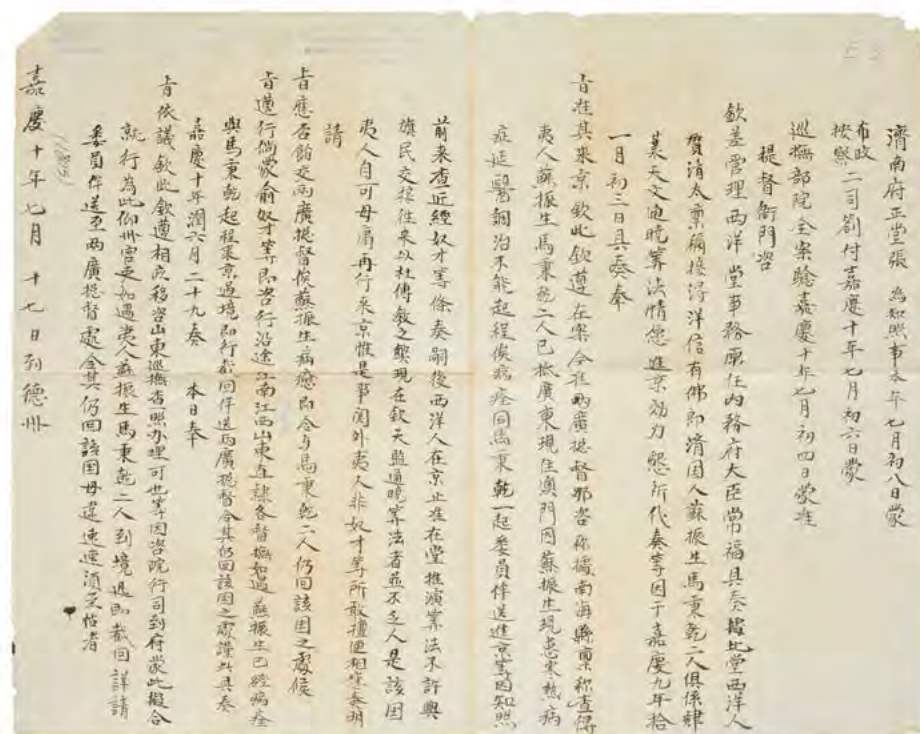 濟南府正堂張 為知照事本年七月初八日蒙
布政
按察二司劄付嘉慶十年七月初六日蒙
巡撫部院全案驗嘉慶十年七月初四日蒙准
提督衙門咨
欽差管理西洋堂事務原任內務府大臣常福具奏據北堂西洋人
賀清太稟稱接得洋信有佛即濟因人蘇振生馬秉乾二人俱係肄
業天文通曉筭法情愿進京効力懇祈代奏等因于嘉慶九年拾
一月初三日具奏奉
旨准其來京欽此欽遵在案今准兩廣捴督那咨称據南海縣稟称查得
夷人蘇振生馬秉乾二人已抵廣東現住澳門因蘇振生現患寒熱病
症延醫調治不能起程俟病痊同馬秉乾一起委員伴送進京等因知照
前来查近經奴才等條奏嗣後西洋人在京止准在堂推演筭法不許與
旗民交接往来以杜傳教之弊現在欽天監通曉筭法者並不乏人是該国
夷人自可毋庸再行来京惟是事関外夷人非奴才等所敢擅便相應奏明
請
旨應否飭交兩廣捴督俟蘇振生病癒即令与馬秉乾二人仍回該国之處候
旨遵行倘蒙俞奴才等即咨行沿途江南江西山東直隷各督撫如遇蘇振生已經病痊
與馬秉乾起程来京過境即行截回伴送两廣捴督令其仍回該国之處謹此具奏
嘉慶十年潤六月二十九奏 本日奉
旨依議欽此欽遵相應移咨山東巡撫查照办理可也等因咨院行司到府蒙此擬合
就行為此仰州官吏如遇夷人蘇振生馬秉乾二人到境迅即截回詳請
委員伴送至两廣捴督處令其仍回該国毋違速速須至帖者
嘉慶十年七月 十七日到德州